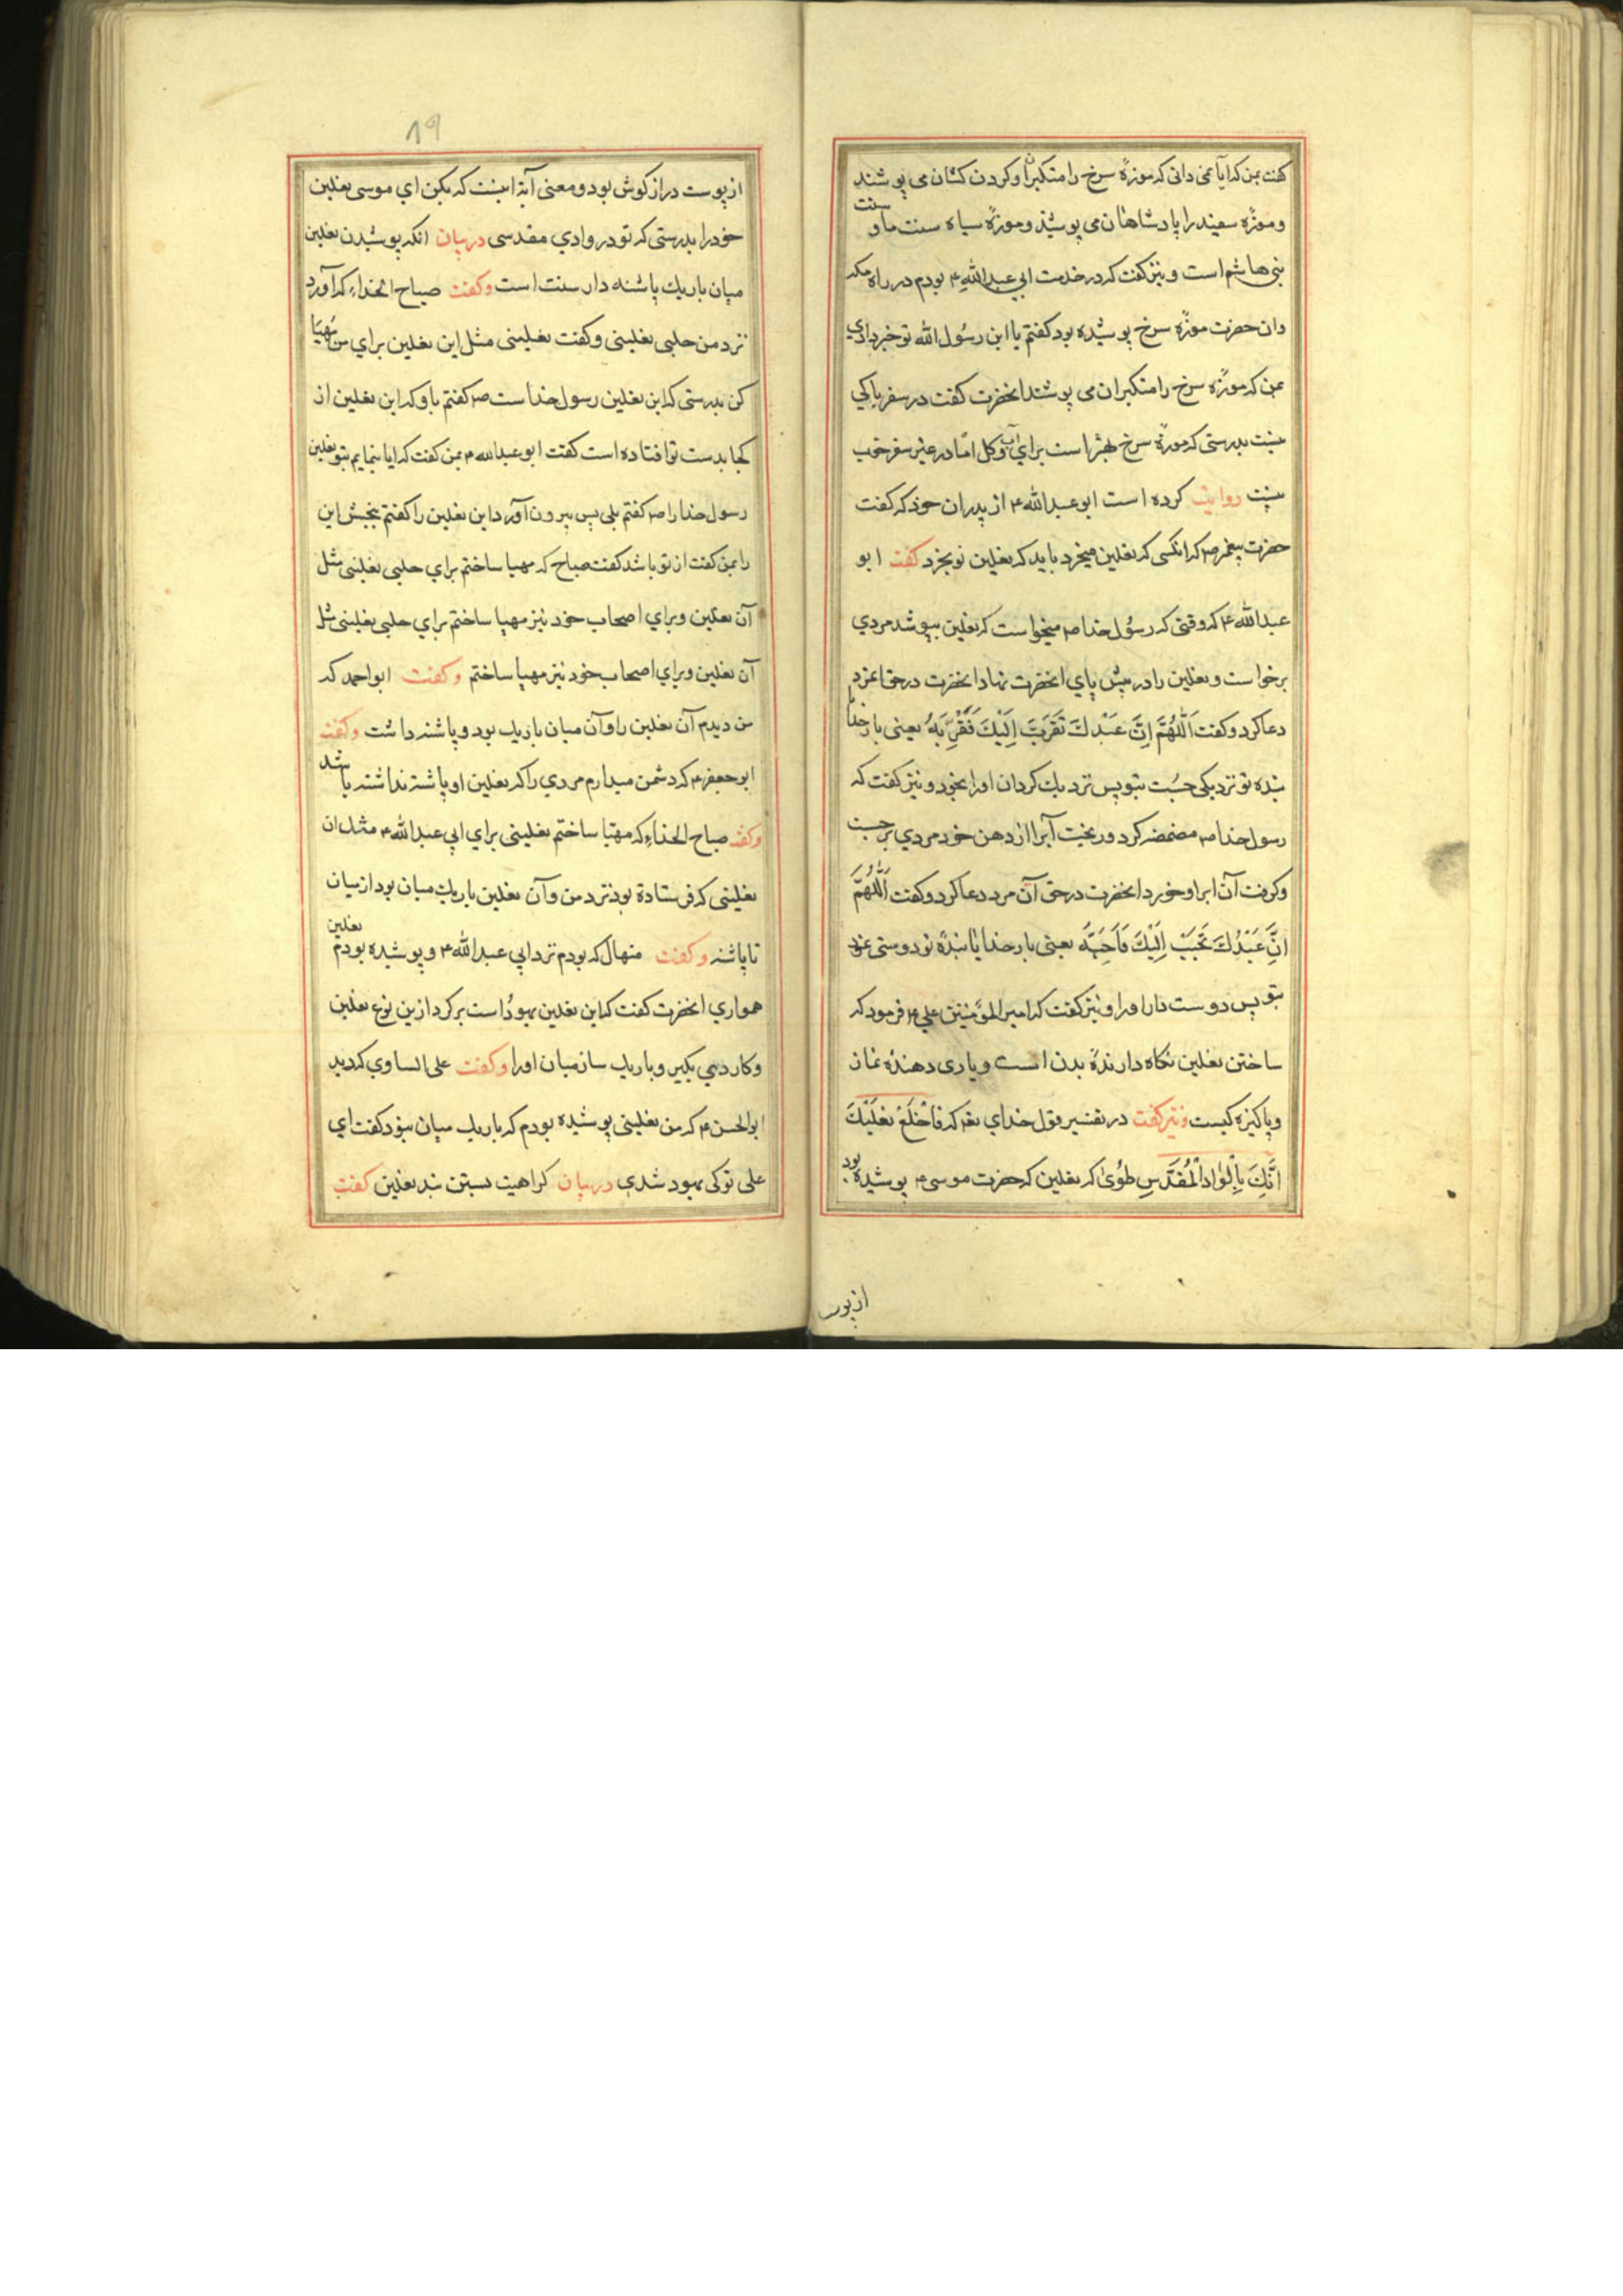 کفت بمن که ایا نمی دانی که موزهٔ سرخ را متکبران و کردن کشان می پوشند
و موزهٔ سفید را پادشاهان می پوشند و موزهٔ سیاه سنت ما و سنت
بنی هاشم است و نیز کفت که در خدمت ابی عبدالله ۴ بودم در راه مکه
وان حضرت موزهٔ سرخ پوشیده بود کفتم یا ابن رسُول الله تو خبر دادی
بمن که موزهٔ سرخ را متکبران می پوشند انحضرت کفت در سفر باکی
نیست بدرستی که موزهٔ سرخ بهتر است برای آب و کل امّا در غیر سفر خوب
نیست روایت کرده است ابو عبدالله ۴ از پدران خود که کفت
حضرت پیغمبر ص که انکسی که نعلین میخرد باید که نعلین نو بخرد کفت ابو
عبدالله ۴ که وقتی که رسُول خدا ص میخواست که نعلین بپوشد مردی
برخواست و نعلین را در پیش پای انحضرت نهاد انحضرت در حق انمرد
دعا کرد و کفت اَللّٰهُمَّ اِنَّ عَبْدَكَ تَقَرَّبَ اِلَیْكَ فَقَرِّبَهُ یعنی بار خدایا
بنده تو نزدیکی جُست بتو پس نزدیك کردان اورا بخود و نیز کفت که
رسول خدا ص مضمضه کرد و ریخت آبرا از دهن خود مردی برجست
و کرفت آن ابرا و خورد انحضرت در حق آن مرد دعا کرد و کفت اَللّٰهُمَّ
اِنَّ عَبْدُكَ تَحَبَّبَ اِلَیْكَ فَاَحِبَّهُ یعنی بار خدایا بندهٔ تو دوستی نمود
بتو پس دوست دار اورا و نیز کفت که امیر المؤمنین علی ۴ فرمود که
ساختن نعلین نکاه دارندهٔ بدن است و یاری دهندهٔ نماز
و پاکیزه کیست و نیز کفت در تفسیر قول خدای تعه که فَاخْلَعْ نَعْلَیْكَ
اِنَّكَ بِالْوٰادِ الْمُقَدَّسِ طُوًی که نعلین که حضرت موسی ۴ پوشیده بود
از پوست
۸۹
از پوست دراز کوش بود و معنی آیة اینست که بکن ای موسی نعلین
خود را بدرستی که تو در وادی مقدسی در بیان انکه پوشیدن نعلین
میان باریك پاشنه دار سنت است و کفت صباح الحذاء که آورد
نزد من حلبی نعلینی و کفت نعلینی مثل این نعلین برای من مُهیّا
کن بدرستی که این نعلین رسول خدا ست ص کفتم باو که این نعلین از
کجا بدست تو افتاده است کفت ابو عبدالله ۴ بمن کفت که ایا بنمایم بتو نعلین
رسول خدا را ص کفتم بلی پس بیرون آورد این نعلین را کفتم ببخش این
را بمن کفت از تو باشد کفت صباح که مهیا ساختم برای حلبی نعلینی مثل
آن نعلین و برای اصحاب خود نیز مهیا ساختم برای حلبی نعلینی مثل
آن نعلین و برای اصحاب خود نیز مهیا ساختم و کفت ابو احمد که
من دیدم آن نعلین را و آن میان باریك بود و پاشنه داشت و کفت
ابو جعفر ۴ که دشمن میدارم مردی را که نعلین او پاشنه نداشته باشد
و کفت صباح الحذاء که مهیّا ساختم نعلینی برای ابی عبدالله ۴ مثل ان
نعلینی که فرستادهٔ بود نزد من و آن نعلین باریك میان بود از میان
تا پاشنه و کفت منهال که بودم نزد ابی عبدالله ۴ و پوشیده بودم نعلین
همواری انحضرت کفت که این نعلین یهوُد است برکرد از این نوع نعلین
و کاردی بکیر و باریك ساز میان اورا و کفت علی الساوی که دید
ابو الحسن ۴ که من نعلینی پوشیده بودم که باریك میان نبود کفت ای
علی تو کی یهود شدی در بیان کراهیت بستن بند نعلین کفت